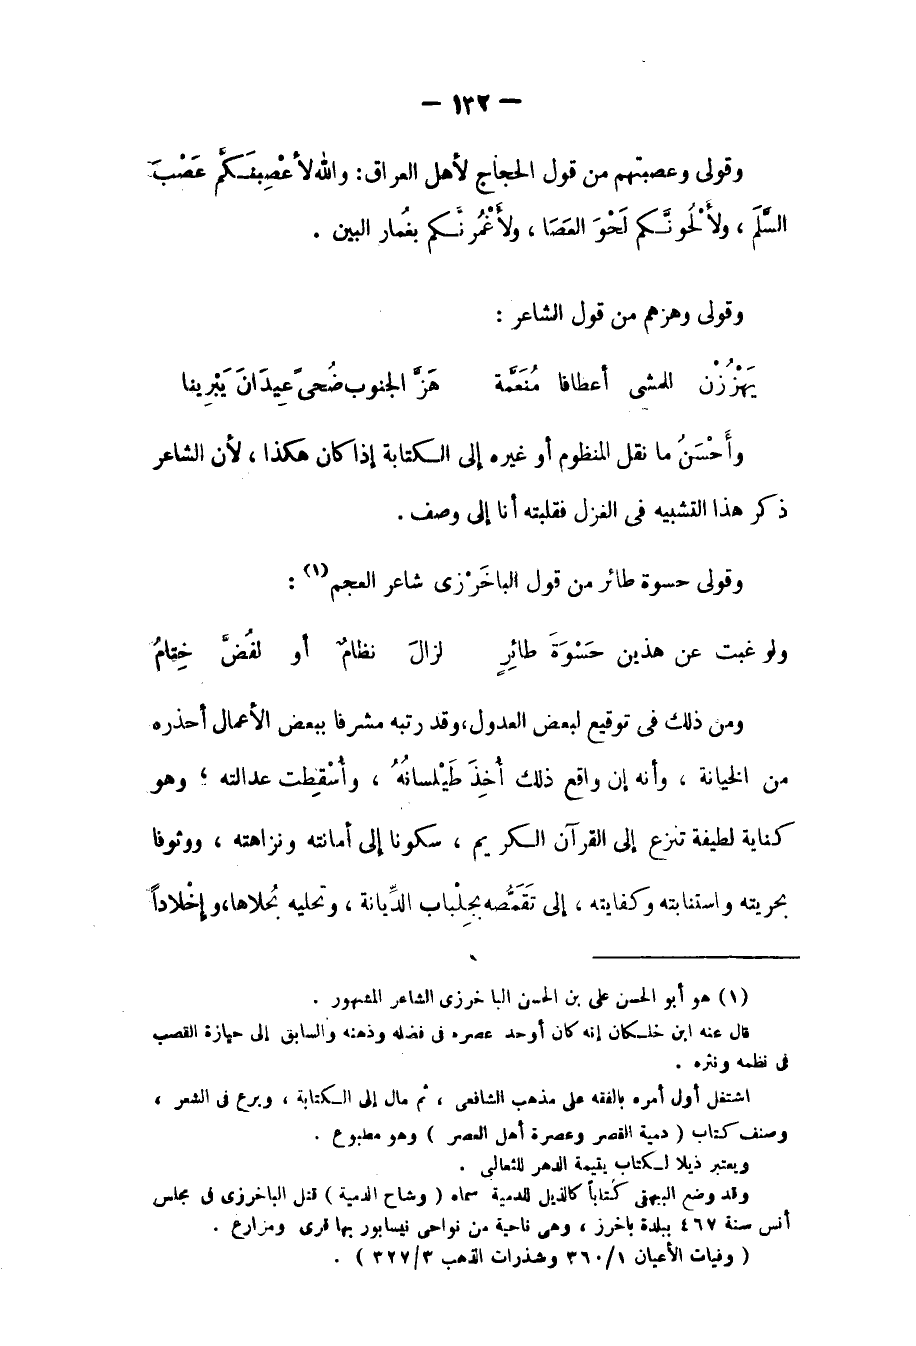 — ١٣٢ —
وقولى وعصبتهم من قول الحجاج لأهل العراق: والله لأعْصِبنَّكم عَصْبَ
السَّلَم ، ولأَلْحُونَّكم لَحْوَ العَصَا ، ولأَغْمُرنَّكم بغُمار البين .
وقولى وهزهم من قول الشاعر :
يَهْزُزْن للمشى أعطافا مُنَعَّمة هَزَّ الجنوب ضُحىً عِيدَانَ يَبْرِينا
وأَحْسَنُ ما نقل المنظوم أو غيره إلى الكتابة إذا كان هكذا ، لأن الشاعر
ذكر هذا التشبيه فى الغزل فقلبته أنا إلى وصف .
وقولى حسوة طائر من قول الباخَرْزى شاعر العجم(١) :
ولو غبت عن هذين حَسْوَةَ طائِرٍ لزالَ نظامٌ أو لفُضَّ خِتامُ
ومن ذلك فى توقيع لبعض العدول،وقد رتبه مشرفا ببعض الأعمال أحذره
من الخيانة ، وأنه إن واقع ذلك أُخِذَ طَيْلسانُهُ ، وأُسْقِطت عدالته ؛ وهو
كناية لطيفة تنزع إلى القرآن الكريم ، سكونا إلى أمانته ونزاهته ، ووثوقا
بحريته واستنابته وكفايته ، إلى تَقَمُّصه بجِلْباب الدِّيانة ، وتحليه بحُلاها،وإخْلاداً
(١) هو أبو الحسن على بن الحسن الباخرزى الشاعر المشهور .
قال عنه ابن خلكان إنه كان أوحد عصره فى فضله وذهنه والسابق إلى حيازة القصب
فى نظمه ونثره .
اشتغل أول أمره بالفقه على مذهب الشافعى ، ثم مال إلى الكتابة ، وبرع فى الشعر ،
وصنف كتاب ( دمية القصر وعصرة أهل العصر ) وهو مطبوع .
ويعتبر ذيلا لكتاب يتيمة الدهر للثعالى .
وقد وضع البيهقى كتاباً كالذيل للدمية سماه ( وشاح الدمية ) قتل الباخرزى فى مجلس
أنس سنة ٤٦٧ ببلدة باخرز ، وهى ناحية من نواحى نيسابور بها قرى ومزارع .
( وفيات الأعيان ٣٦٠/١ وشذرات الذهب ٣٢٧/٣ ) .